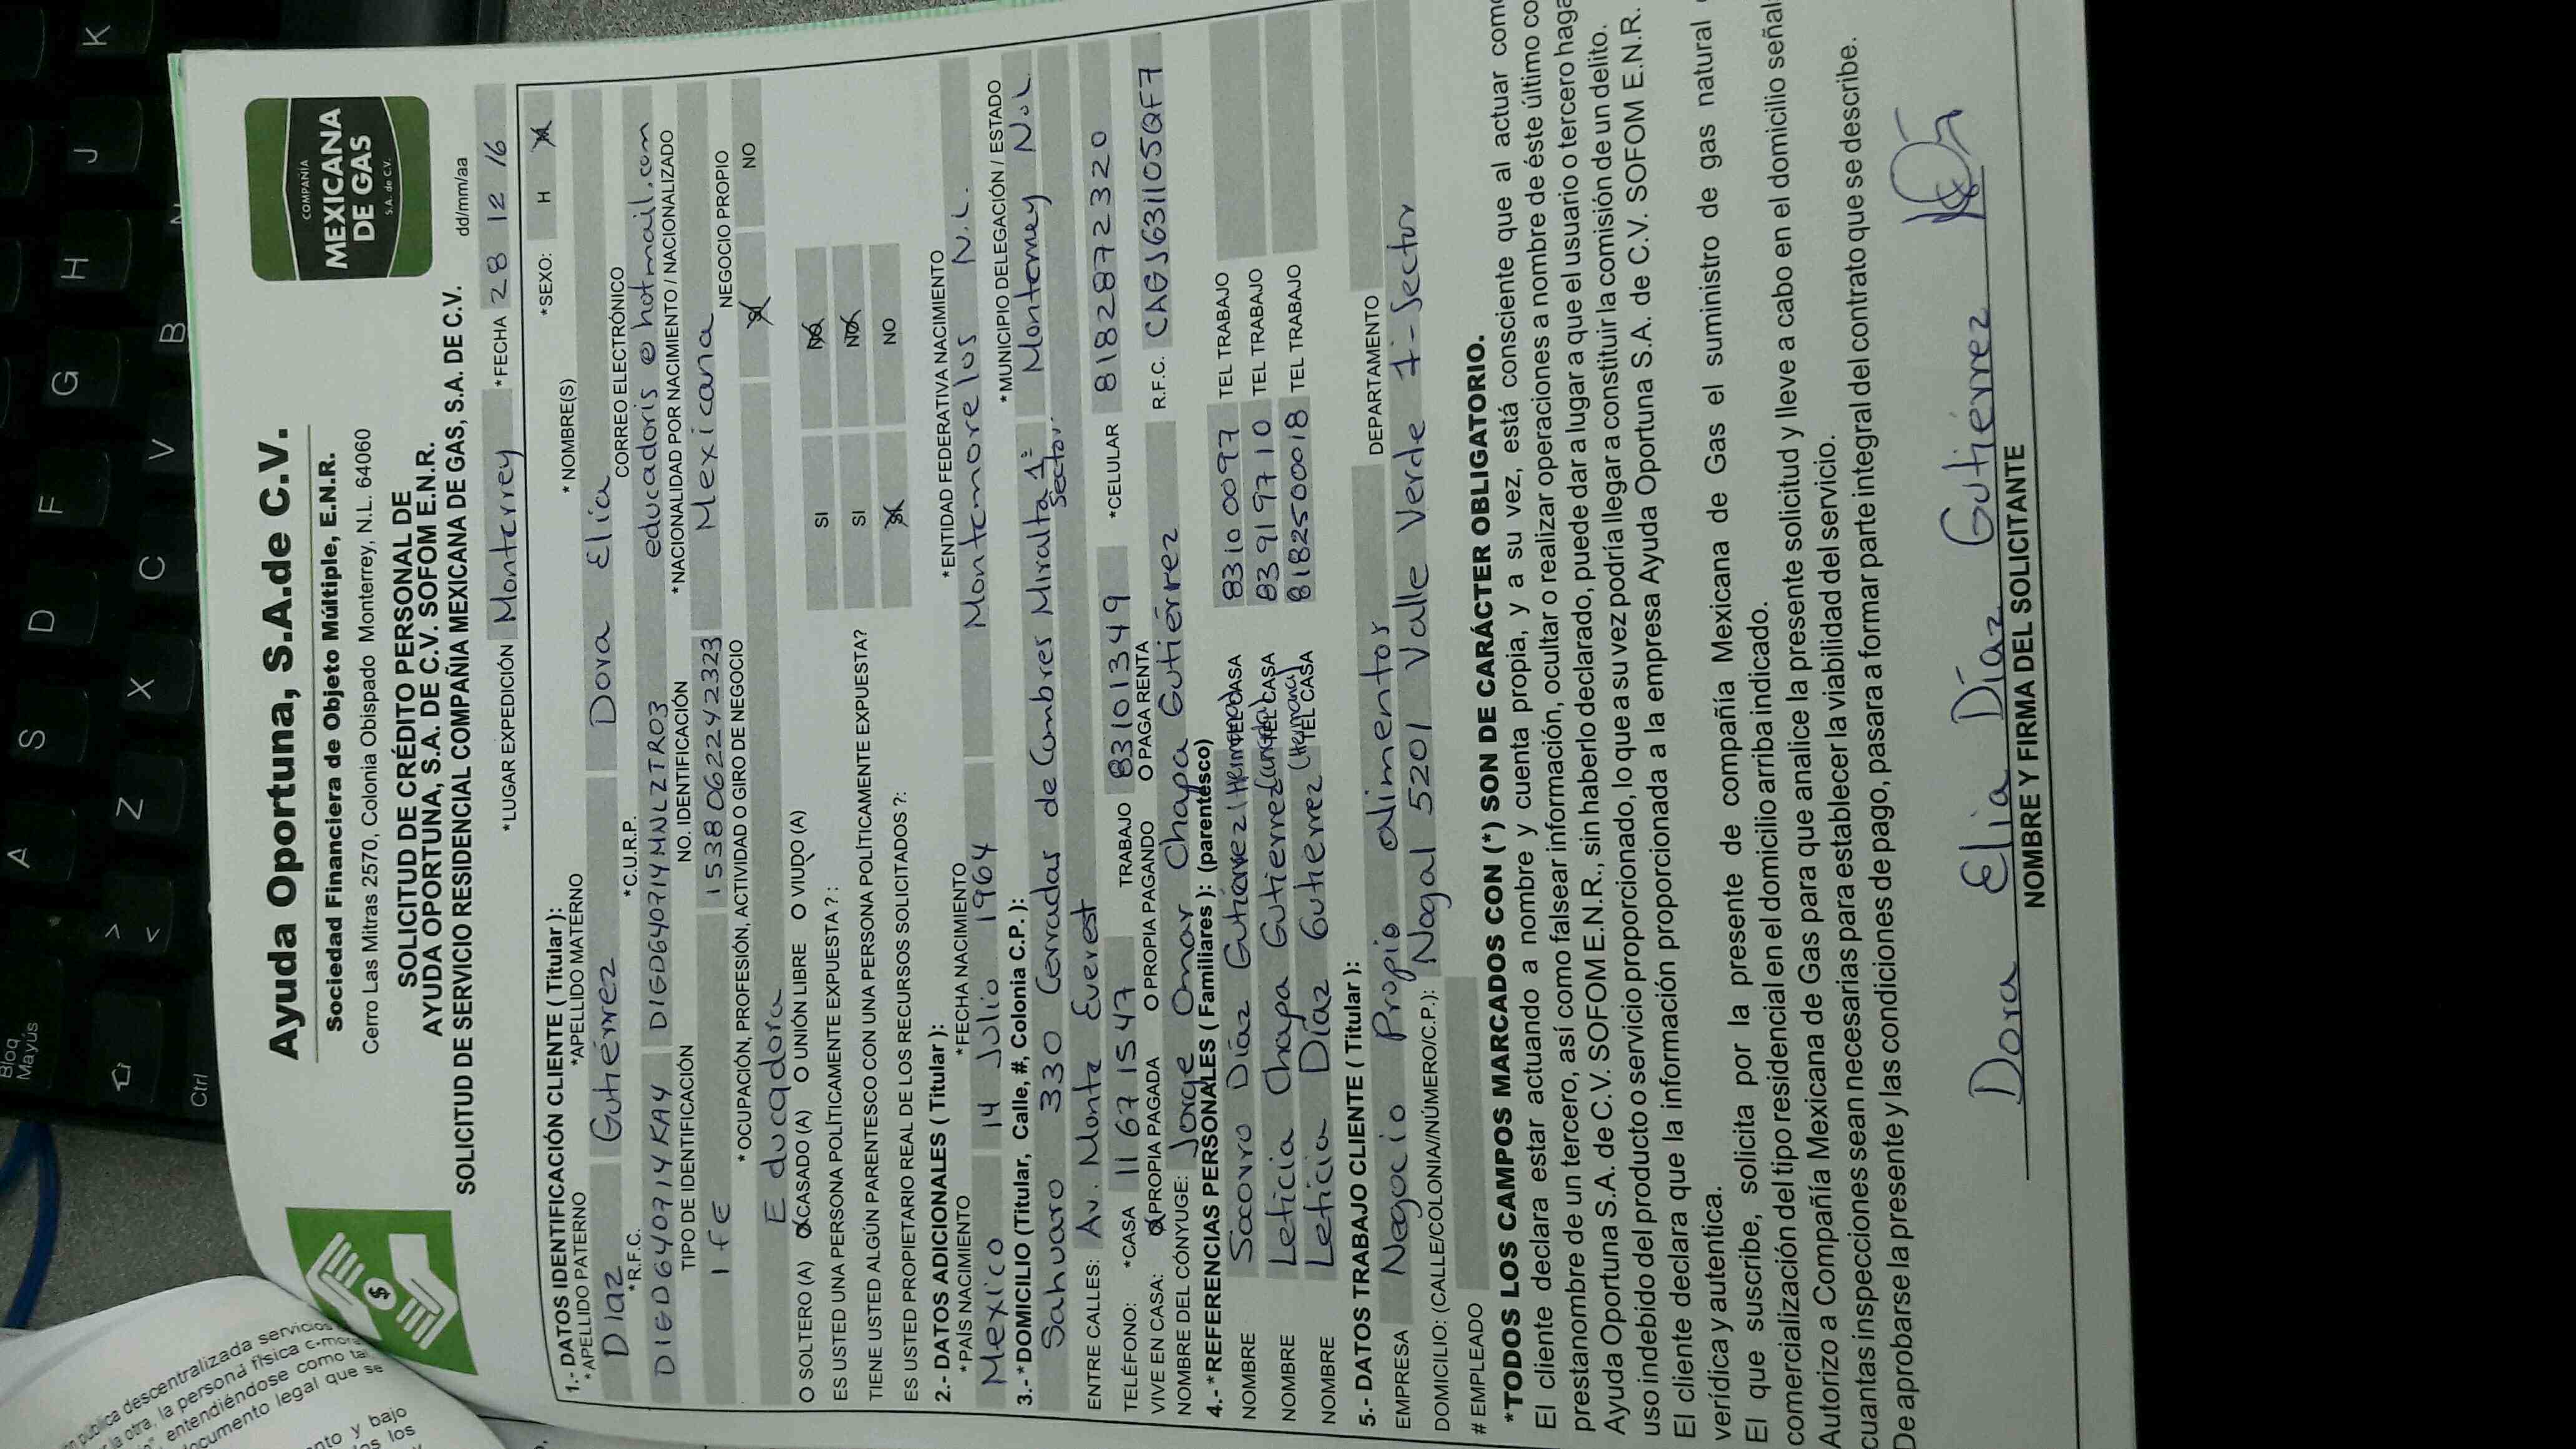 Ayuda Oportuna, S.A.de C.V.
Sociedad Financiera de Objeto Múltiple, E.N.R.
Cerro Las Mitras 2570, Colonia Obispado Monterrey, N.L. 64060
COMPAÑÍA
MEXICANA
DE GAS
S.A. de C.V.
SOLICITUD DE CRÉDITO PERSONAL DE
AYUDA OPORTUNA, S.A. DE C.V. SOFOM E.N.R.
SOLICITUD DE SERVICIO RESIDENCIAL COMPAÑIA MEXICANA DE GAS, S.A. DE C.V.
dd/mm/aa
*LUGAR EXPEDICIÓN Monterrey *FECHA 28 12 16
1.- DATOS IDENTIFICACIÓN CLIENTE ( Titular ):
*SEXO: H
*APELLIDO PATERNO *APELLIDO MATERNO * NOMBRE(S)
Díaz Gutiérrez Dora Elia
*R.F.C. *C.U.R.P. CORREO ELECTRÓNICO
DIGD640714KA4 DIGD640714MNLZTR03 educadoris@hotmail.com
TIPO DE IDENTIFICACIÓN NO. IDENTIFICACIÓN *NACIONALIDAD POR NACIMIENTO / NACIONALIZADO
IFE 1538062242323 Mexicana
* OCUPACIÓN, PROFESIÓN, ACTIVIDAD O GIRO DE NEGOCIO NEGOCIO PROPIO
Educadora SI NO
O SOLTERO (A) O CASADO (A) O UNIÓN LIBRE O VIUDO (A)
ES USTED UNA PERSONA POLÍTICAMENTE EXPUESTA ? : SI NO
TIENE USTED ALGÚN PARENTESCO CON UNA PERSONA POLÍTICAMENTE EXPUESTA? SI NO
ES USTED PROPIETARIO REAL DE LOS RECURSOS SOLICITADOS ?: SI NO
2.- DATOS ADICIONALES ( Titular ):
*PAÍS NACIMIENTO *FECHA NACIMIENTO *ENTIDAD FEDERATIVA NACIMIENTO
Mexico 14 Julio 1964 Montemorelos N.L.
3.-*DOMICILIO (Titular, Calle, #, Colonia C.P. ): *MUNICIPIO DELEGACIÓN / ESTADO
Sahuaro 330 Cerradas de Cumbres Miralta 1º Sector. Monterrey N.L
ENTRE CALLES: Av. Monte Everest
TELÉFONO: *CASA 11 67 15 47 TRABAJO 83101349 *CELULAR 8182872320
VIVE EN CASA: O PROPIA PAGADA O PROPIA PAGANDO O PAGA RENTA
NOMBRE DEL CÓNYUGE: Jorge Omar Chapa Gutiérrez R.F.C. CAGJ631105QF7
4.-*REFERENCIAS PERSONALES ( Familiares ): (parentesco)
NOMBRE Socorro Díaz Gutiérrez (Hermana) TEL CASA 83100097 TEL TRABAJO
NOMBRE Leticia Chapa Gutierrez (cuñada) TEL CASA 83919710 TEL TRABAJO
NOMBRE Leticia Díaz Gutierrez (Hermana) TEL CASA 8182500018 TEL TRABAJO
5.- DATOS TRABAJO CLIENTE ( Titular ):
EMPRESA Negocio Propio alimentor DEPARTAMENTO
DOMICILIO: (CALLE/COLONIA/NÚMERO/C.P.): Nogal 5201 Valle Verde 1-Sector
# EMPLEADO
*TODOS LOS CAMPOS MARCADOS CON (*) SON DE CARÁCTER OBLIGATORIO.
El cliente declara estar actuando a nombre y cuenta propia, y a su vez, está consciente que al actuar como
prestanombre de un tercero, así como falsear información, ocultar o realizar operaciones a nombre de éste último co
Ayuda Oportuna S.A. de C.V. SOFOM E.N.R., sin haberlo declarado, puede dar a lugar a que el usuario o tercero haga
uso indebido del producto o servicio proporcionado, lo que a su vez podría llegar a constituir la comisión de un delito.
El cliente declara que la información proporcionada a la empresa Ayuda Oportuna S.A. de C.V. SOFOM E.N.R.
verídica y autentica.
El que suscribe, solicita por la presente de compañía Mexicana de Gas el suministro de gas natural
comercialización del tipo residencial en el domicilio arriba indicado.
Autorizo a Compañía Mexicana de Gas para que analice la presente solicitud y lleve a cabo en el domicilio señal
cuantas inspecciones sean necesarias para establecer la viabilidad del servicio.
De aprobarse la presente y las condiciones de pago, pasara a formar parte integral del contrato que se describe.
Dora Elia Díaz Gutiérrez
NOMBRE Y FIRMA DEL SOLICITANTE
descentralizada servicios
la otra, la persona física
entendiéndose como
documento legal que se
y bajo
los
Bloq
Mayús
Ctrl
A S D F G H J K
Z X C V B N